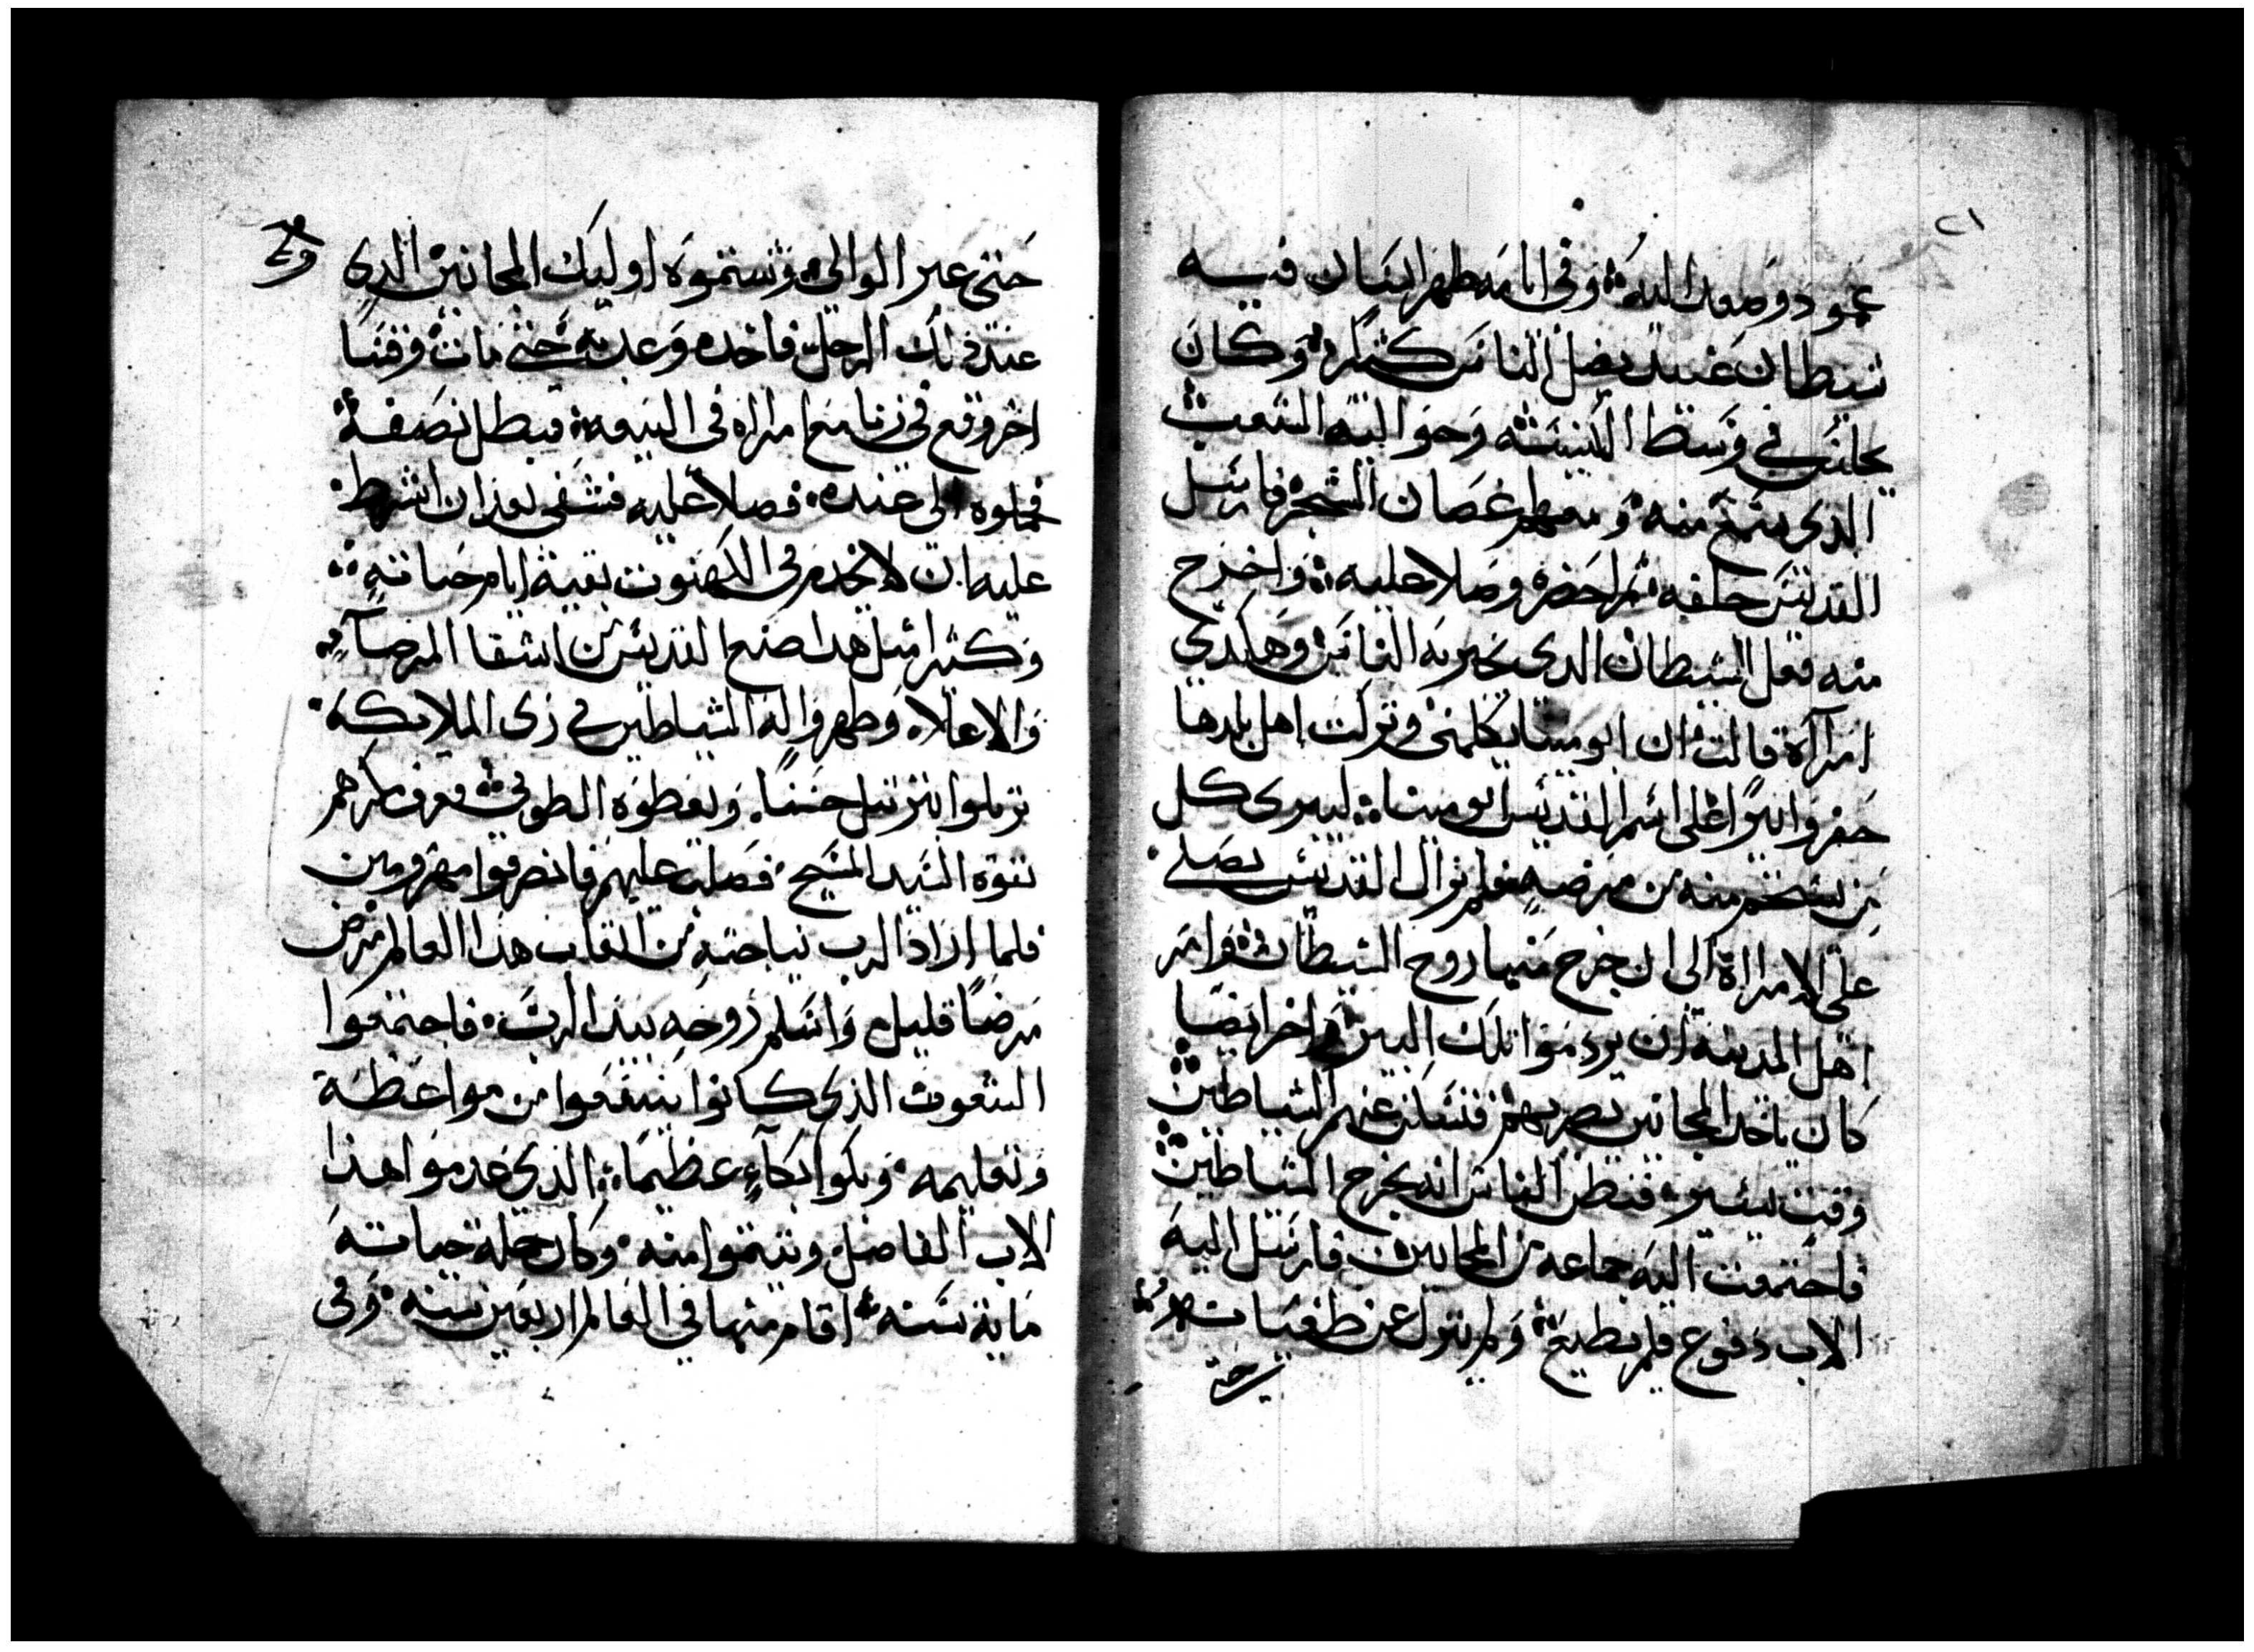 ٢١
عمود وصعدا اليه وفى ايامه ظهر انسان فيه
شيطان عنيد يضل الناس كثيرا وكان
يجلس في وسط الكنيسة وحواليه الشعب
الذى يتمسح منه ومعهم غصان الشجر فارسل
القديس خلفه ثم احضره وصلا عليه واخرج
منه فعل الشيطان الدى يخبر به الناس وهاكدي
امرااة قالت ان ابو مينا يكلمنى وتركت اهل بلدها
حفروا بيرا على اسم القديس ابو مينا ليبرى كل
من يستحم منه من مرضه فلم يزال القديس يصلي
على الامرااة الى ان خرج منها روح الشيطان وامر
اهل المدينة ان يردموا تلك البير واخر ايضا
كان ياخد المجانين يضربهم فتسكن عنهم الشياطين
وقت يسير فتظن الناس انه يخرج الشياطين
فاجتمعت اليه جماعة من المجانين فارسل اليه
الاب دفوع فلم يطيع ولم ينزل عن طغيانهم
حتى
حتى عبر الوالى وشتموه اوليك المجانين الدى
عند دلك الرجل فاخده وعدبه حتى مات وقسا
اخر وقع فى زنا مع امراه فى البيعه فبطل نصفه
فحملوه الى عنده فصلا عليه فشفى بعد ان اشرط
عليه ان لا يخدم فى الكهنوت بقية ايام حياته
وكثير امثل هدا صنع القديس من اشفا المرضا
والاعلاه وظهروا له الشياطين في زى الملايكه
يرتلوا بترتيل حسنا ويعطوه الطوبى فعرف مكرهم
بقوة السيد المسيح فصلب عليهم فانصرفوا مهزومين
فلما اراد الرب نياحته من اتعاب هذا العالم مرض
مرضا قليل واسلم روحه بيد الرب فاجتمعوا
الشعوب الذى كانوا ينتفعوا من مواعظه
وتعليمه وبكوا بكآء عظيما الذي عدموا هذا
الاب الفاضل وتيتموا منه وكان جملة حياته
ماية سنه اقام منها في العالم اربعين سنه وفى